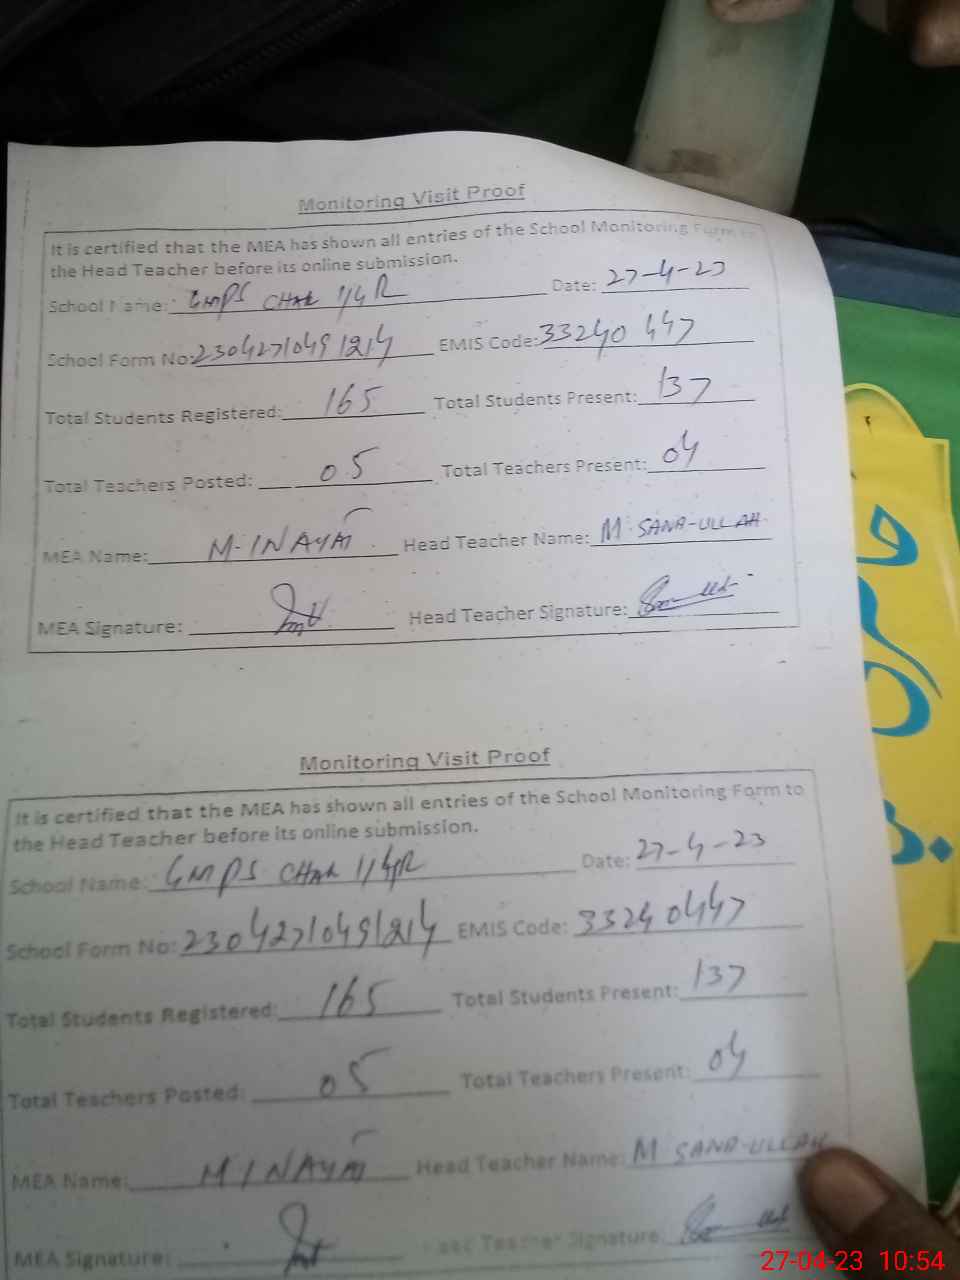 Monitoring Visit Proof
It is certified that the MEA has shown all entries of the School Monitoring Form to
the Head Teacher before its online submission.
School Name: GMPS CHAK 1/4R Date: 27-4-23
School Form No: 23042710491214 EMIS Code: 33240447
Total Students Registered: 165 Total Students Present: 137
Total Teachers Posted: 05 Total Teachers Present: 04
MEA Name: M. INAYAT Head Teacher Name: M. SANA-ULLAH
MEA Signature: Head Teacher Signature:
Monitoring Visit Proof
It is certified that the MEA has shown all entries of the School Monitoring Form to
the Head Teacher before its online submission.
School Name: GMPS CHAK 1/4R Date: 27-4-23
School Form No: 23042710491214 EMIS Code: 33240447
Total Students Registered: 165 Total Students Present: 137
Total Teachers Posted: 05 Total Teachers Present: 04
MEA Name: M INAYAT Head Teacher Name: M SANA-ULLAH
MEA Signature: Head Teacher Signature:
27-04-23 10:54